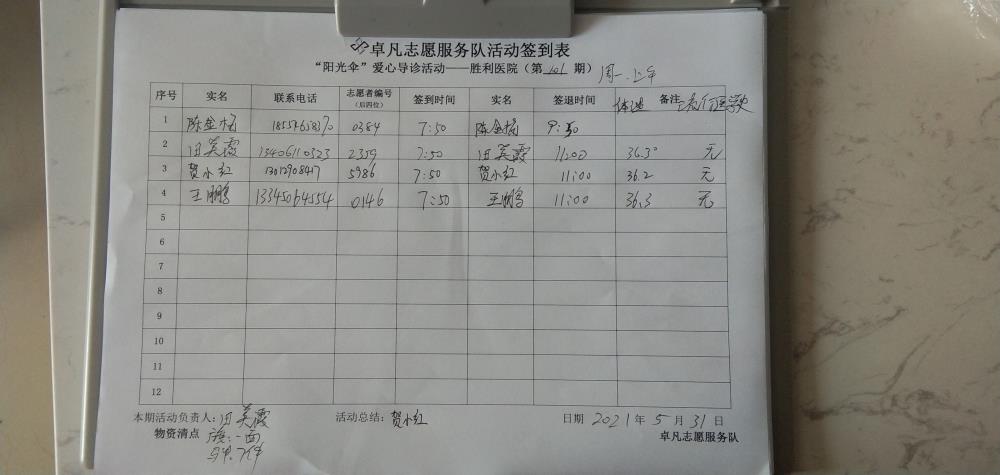 卓凡志愿服务队活动签到表
“阳光伞”爱心导诊活动——胜利医院（第 101 期） 周一.上午
序号 实名 联系电话 志愿者编号（后四位） 签到时间 实名 签退时间 体温 备注
1 陈金梅 0384 7:50 陈金梅 9:50
2 田美霞 13406110323 2359 7:50 田美霞 11:00 36.3° 无
3 贺小红 13012908417 5986 7:50 贺小红 11:00 36.2 无
4 王鹏 13345064554 0146 7:50 王鹏 11:00 36.3 无
5
6
7
8
9
10
11
12
本期活动负责人：田美霞 活动总结：贺小红 日期 2021 年 5 月 31 日
物资清点 旗：一面 卓凡志愿服务队
马甲.7件